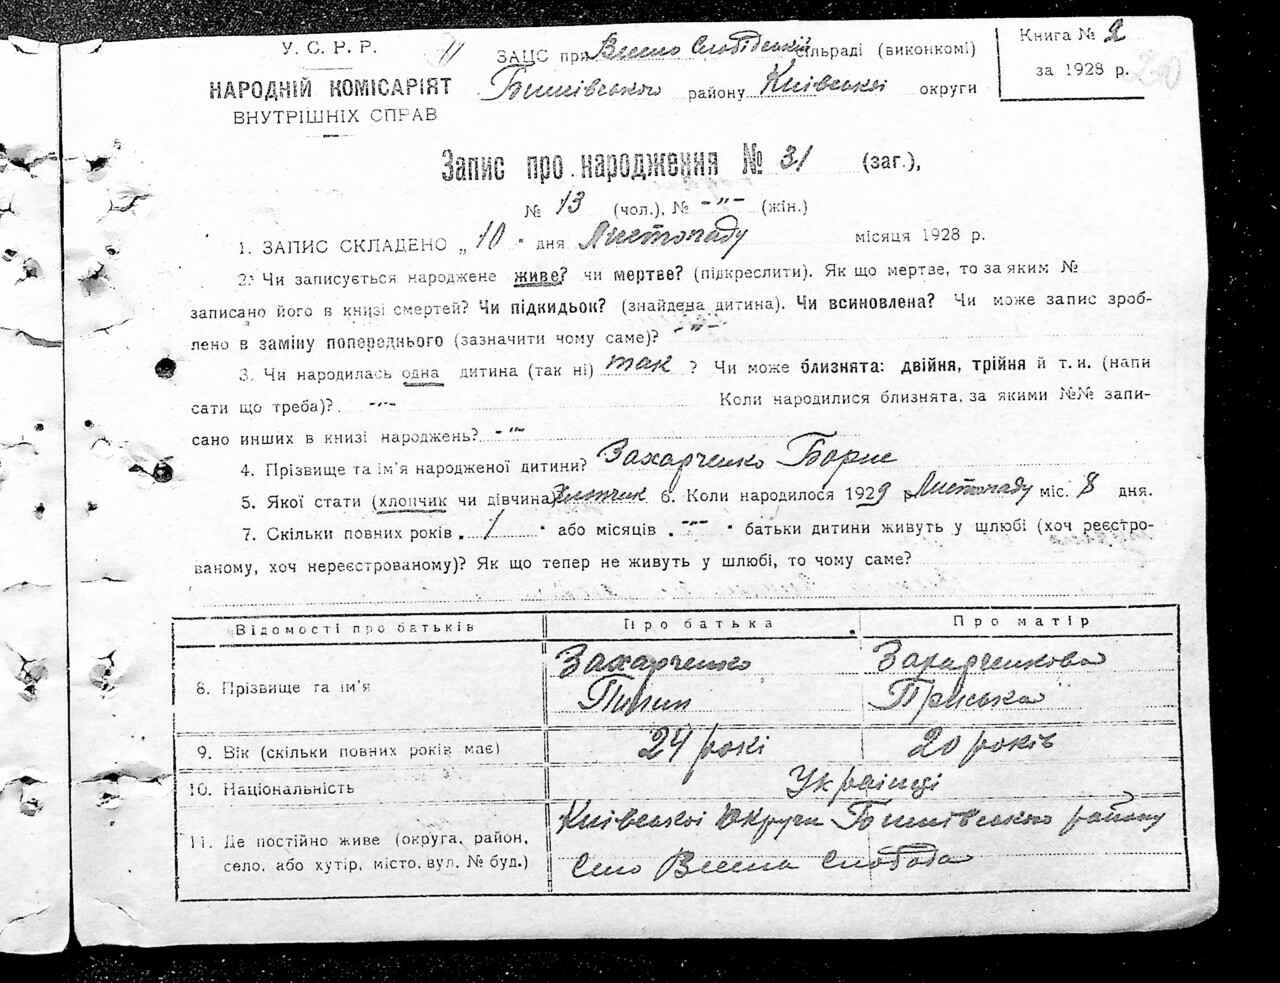 У. С. Р. Р.
НАРОДНІЙ КОМІСАРІЯТ
ВНУТРІШНІХ СПРАВ
11
ЗАЦС при Весело Слобідській сільраді (виконкомі)
Бишівського району Київської округи
Книга № 2
за 1928 р.
Запис про народження № 31 (заг.),
№ 13 (чол.), № -"- (жін.)
1. ЗАПИС СКЛАДЕНО „10" дня Листопаду місяця 1928 р.
2. Чи записується народжене живе? чи мертве? (підкреслити). Як що мертве, то за яким №
записано його в книзі смертей? Чи підкидьок? (знайдена дитина). Чи всиновлена? Чи може запис зроб-
лено в заміну попереднього (зазначити чому саме)? -"-
3. Чи народилась одна дитина (так ні) так ? Чи може близнята: двійня, трійня й т. и. (напи
сати що треба)? -"- Коли народилися близнята, за якими №№ запи-
сано инших в книзі народжень? -"-
4. Прізвище та ім'я народженої дитини? Захарченко Борис
5. Якої стати (хлопчик чи дівчина) Хлопчик 6. Коли народилося 1929 р. Листопаду міс. 8 дня.
7. Скільки повних років „1" або місяців „-"-" батьки дитини живуть у шлюбі (хоч реєстро-
ваному, хоч нереєстрованому)? Як що тепер не живуть у шлюбі, то чому саме?
Відомості про батьків Про батька Про матір
8. Прізвище та ім'я
Захарченко Захарченкова
Пилип Пріська
9. Вік (скільки повних років має) 24 рокі 20 років
10. Національність Українці
11. Де постійно живе (округа, район,
село, або хутір, місто, вул. № буд.)
Київської Округи Бишівського району
Село Весела Слобода